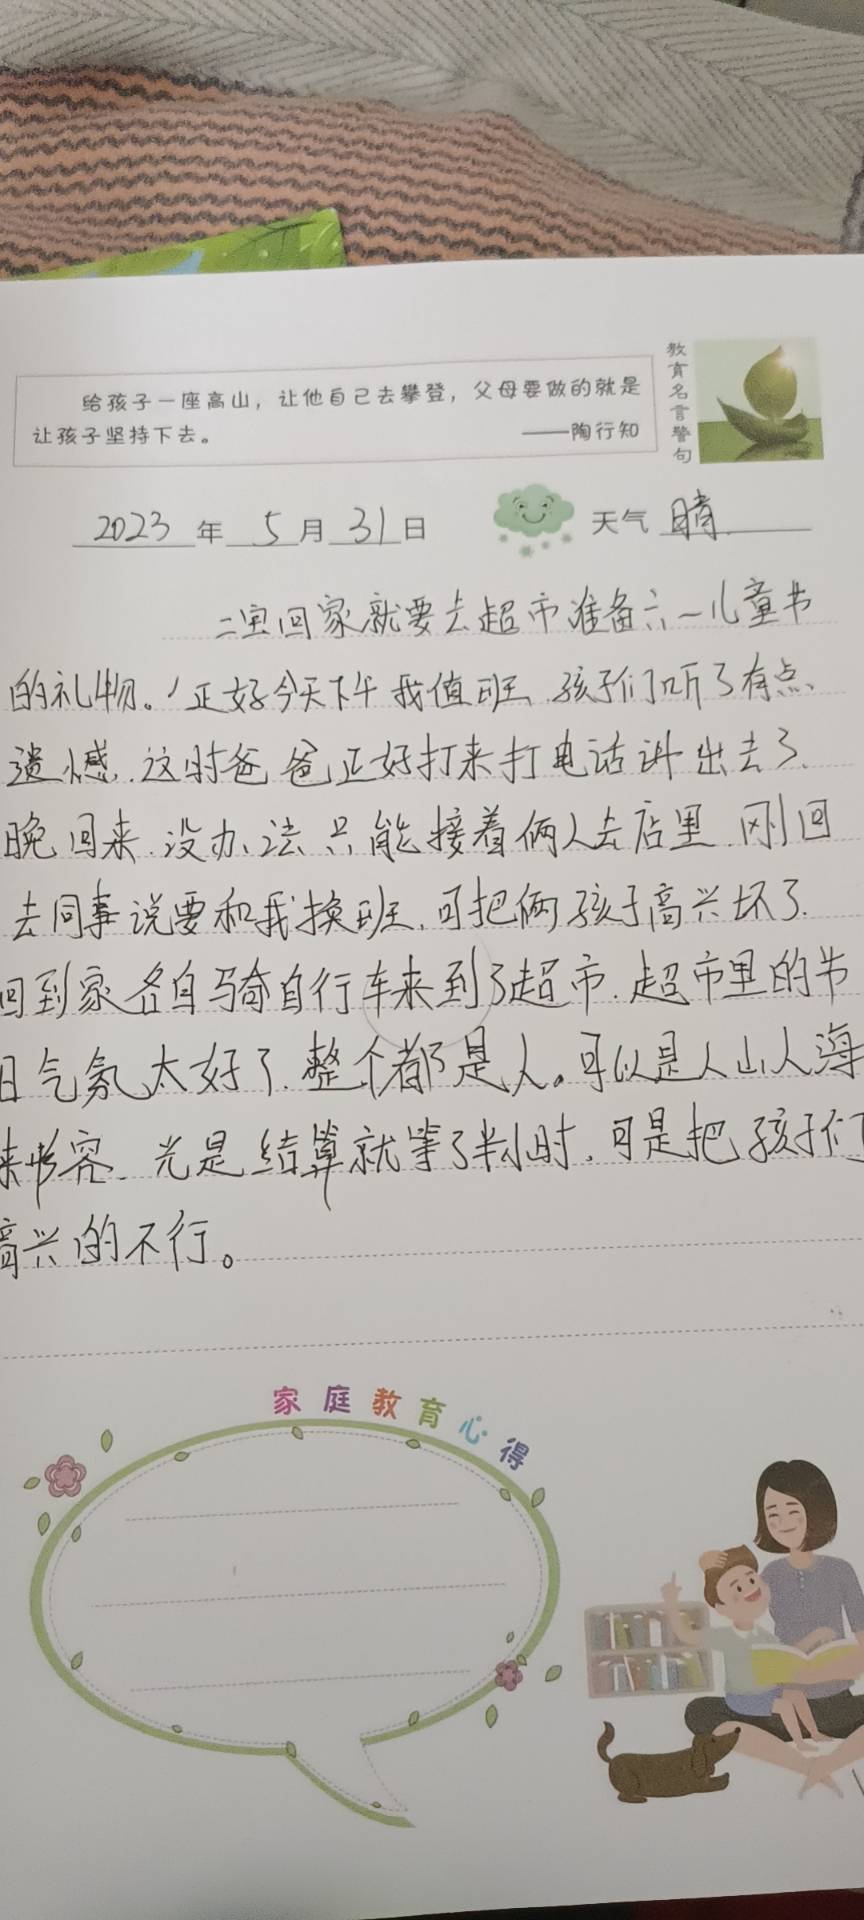 给孩子一座高山，让他自己去攀登，父母要做的就是
让孩子坚持下去。 ——陶行知
教育名言警句
2023年5月31日 天气 晴
二宝回家就要去超市准备六一儿童节
的礼物。正好今天下午我值班、孩子们听了有点
遗憾.这时爸爸正好打来打电话讲出去了.
晚回来.没办法只能接着俩人去店里.刚回
去同事说要和我换班,可把俩孩子高兴坏了.
回到家各自骑自行车来到了超市.超市里的节
日气氛太好了.整个都是人。可以是人山人海
来形容.光是结算就等了半小时.可是把孩子们
高兴的不行。
家庭教育心得